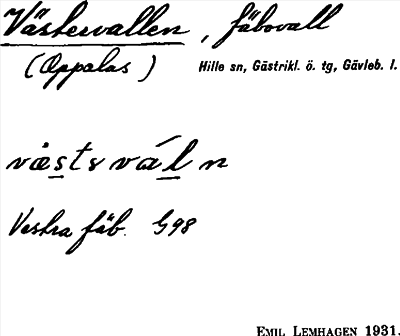 Västervallen, fäbovall
(Oppalas) Hille sn, Gästrikl. ö. tg, Gävleb. l.
Vestra fäb. G98
EMIL LEMHAGEN 1931.